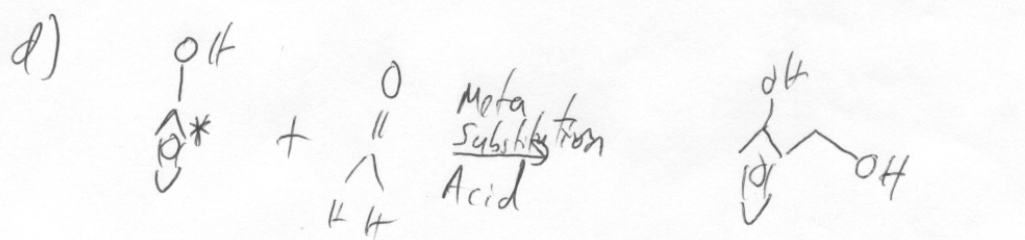 d)
OH
O
*
+
H H
Meta
Substitution
Acid
OH
OH